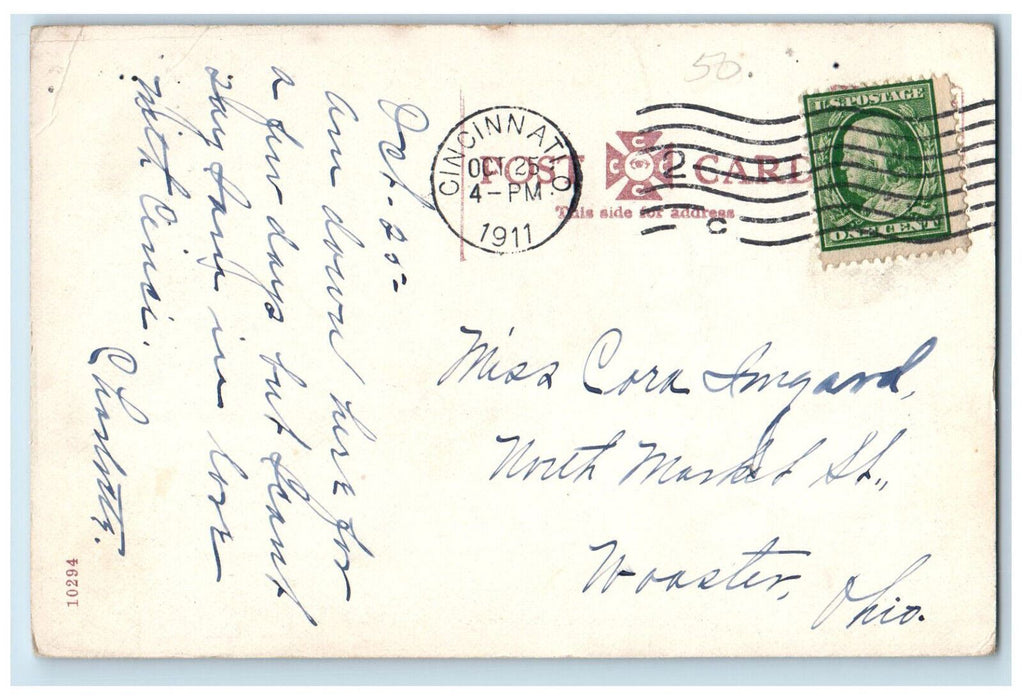 50.
CINCINNATI, O.
OCT 25
4-PM
1911
2
C
U.S. POSTAGE
ONE CENT
POST CARD
This side for address
Oct-25-
Am down here for
a few days but can't
say I am in love
with Cinci.
Charlotte.
Miss Cora Imgard,
North Market St.,
Wooster,
Ohio.
10294